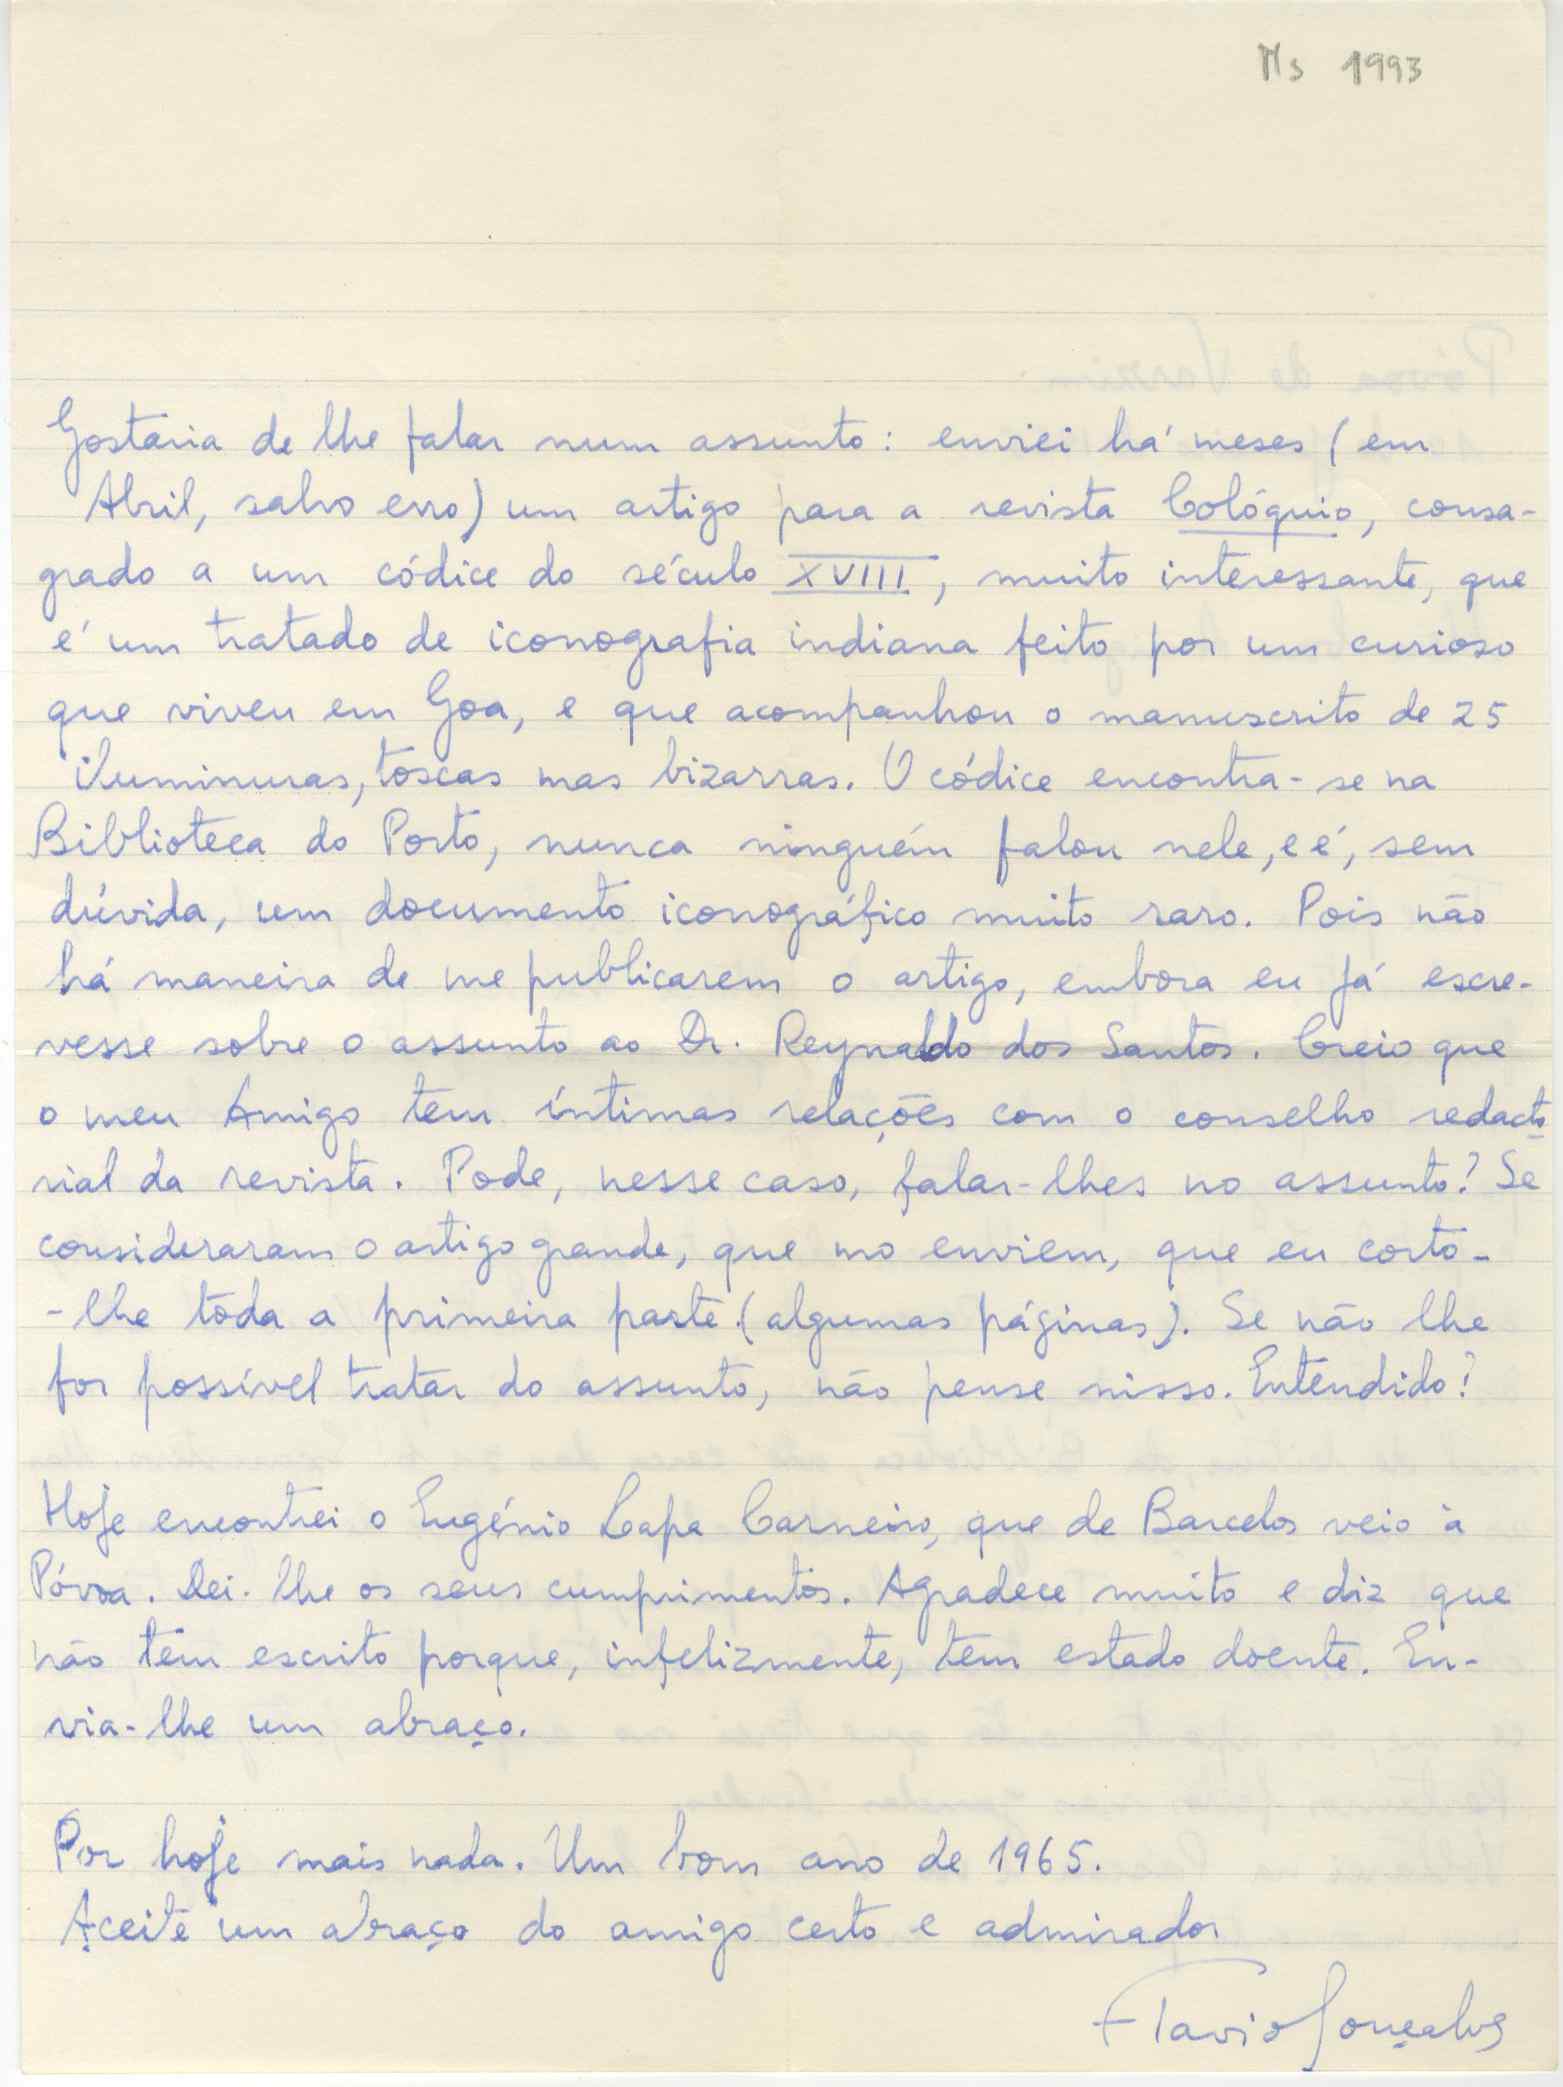 Ms 1993
Gostaria de lhe falar num assunto: enviei há meses (em
Abril, salvo erro) um artigo para a revista Colóquio, consa-
grado a um códice do século XVIII, muito interessante, que
é um tratado de iconografia indiana feito por um curioso
que viveu em Goa, e que acompanhou o manuscrito de 25
iluminuras, toscas mas bizarras. O códice encontra-se na
Biblioteca do Porto, nunca ninguém falou nele, e é, sem
dúvida, um documento iconográfico muito raro. Pois não
há maneira de me publicarem o artigo, embora eu já escre-
vesse sobre o assunto ao Dr. Reynaldo dos Santos. Creio que
o meu Amigo tem íntimas relações com o conselho redacto
rial da revista. Pode, nesse caso, falar-lhes no assunto? Se
consideraram o artigo grande, que mo enviem, que eu corto-
-lhe tôda a primeira parte (algumas páginas). Se não lhe
for possível tratar do assunto, não pense nisso. Entendido?
Hoje encontrei o Eugénio Lapa Carneiro, que de Barcelos veio à
Póvoa. Dei-lhe os seus cumprimentos. Agradece muito e diz que
não tem escrito porque, infelizmente, tem estado doente. En-
via-lhe um abraço.
Por hoje mais nada. Um bom ano de 1965.
Aceite um abraço do amigo certo e admirador
Flavio Gonçalves